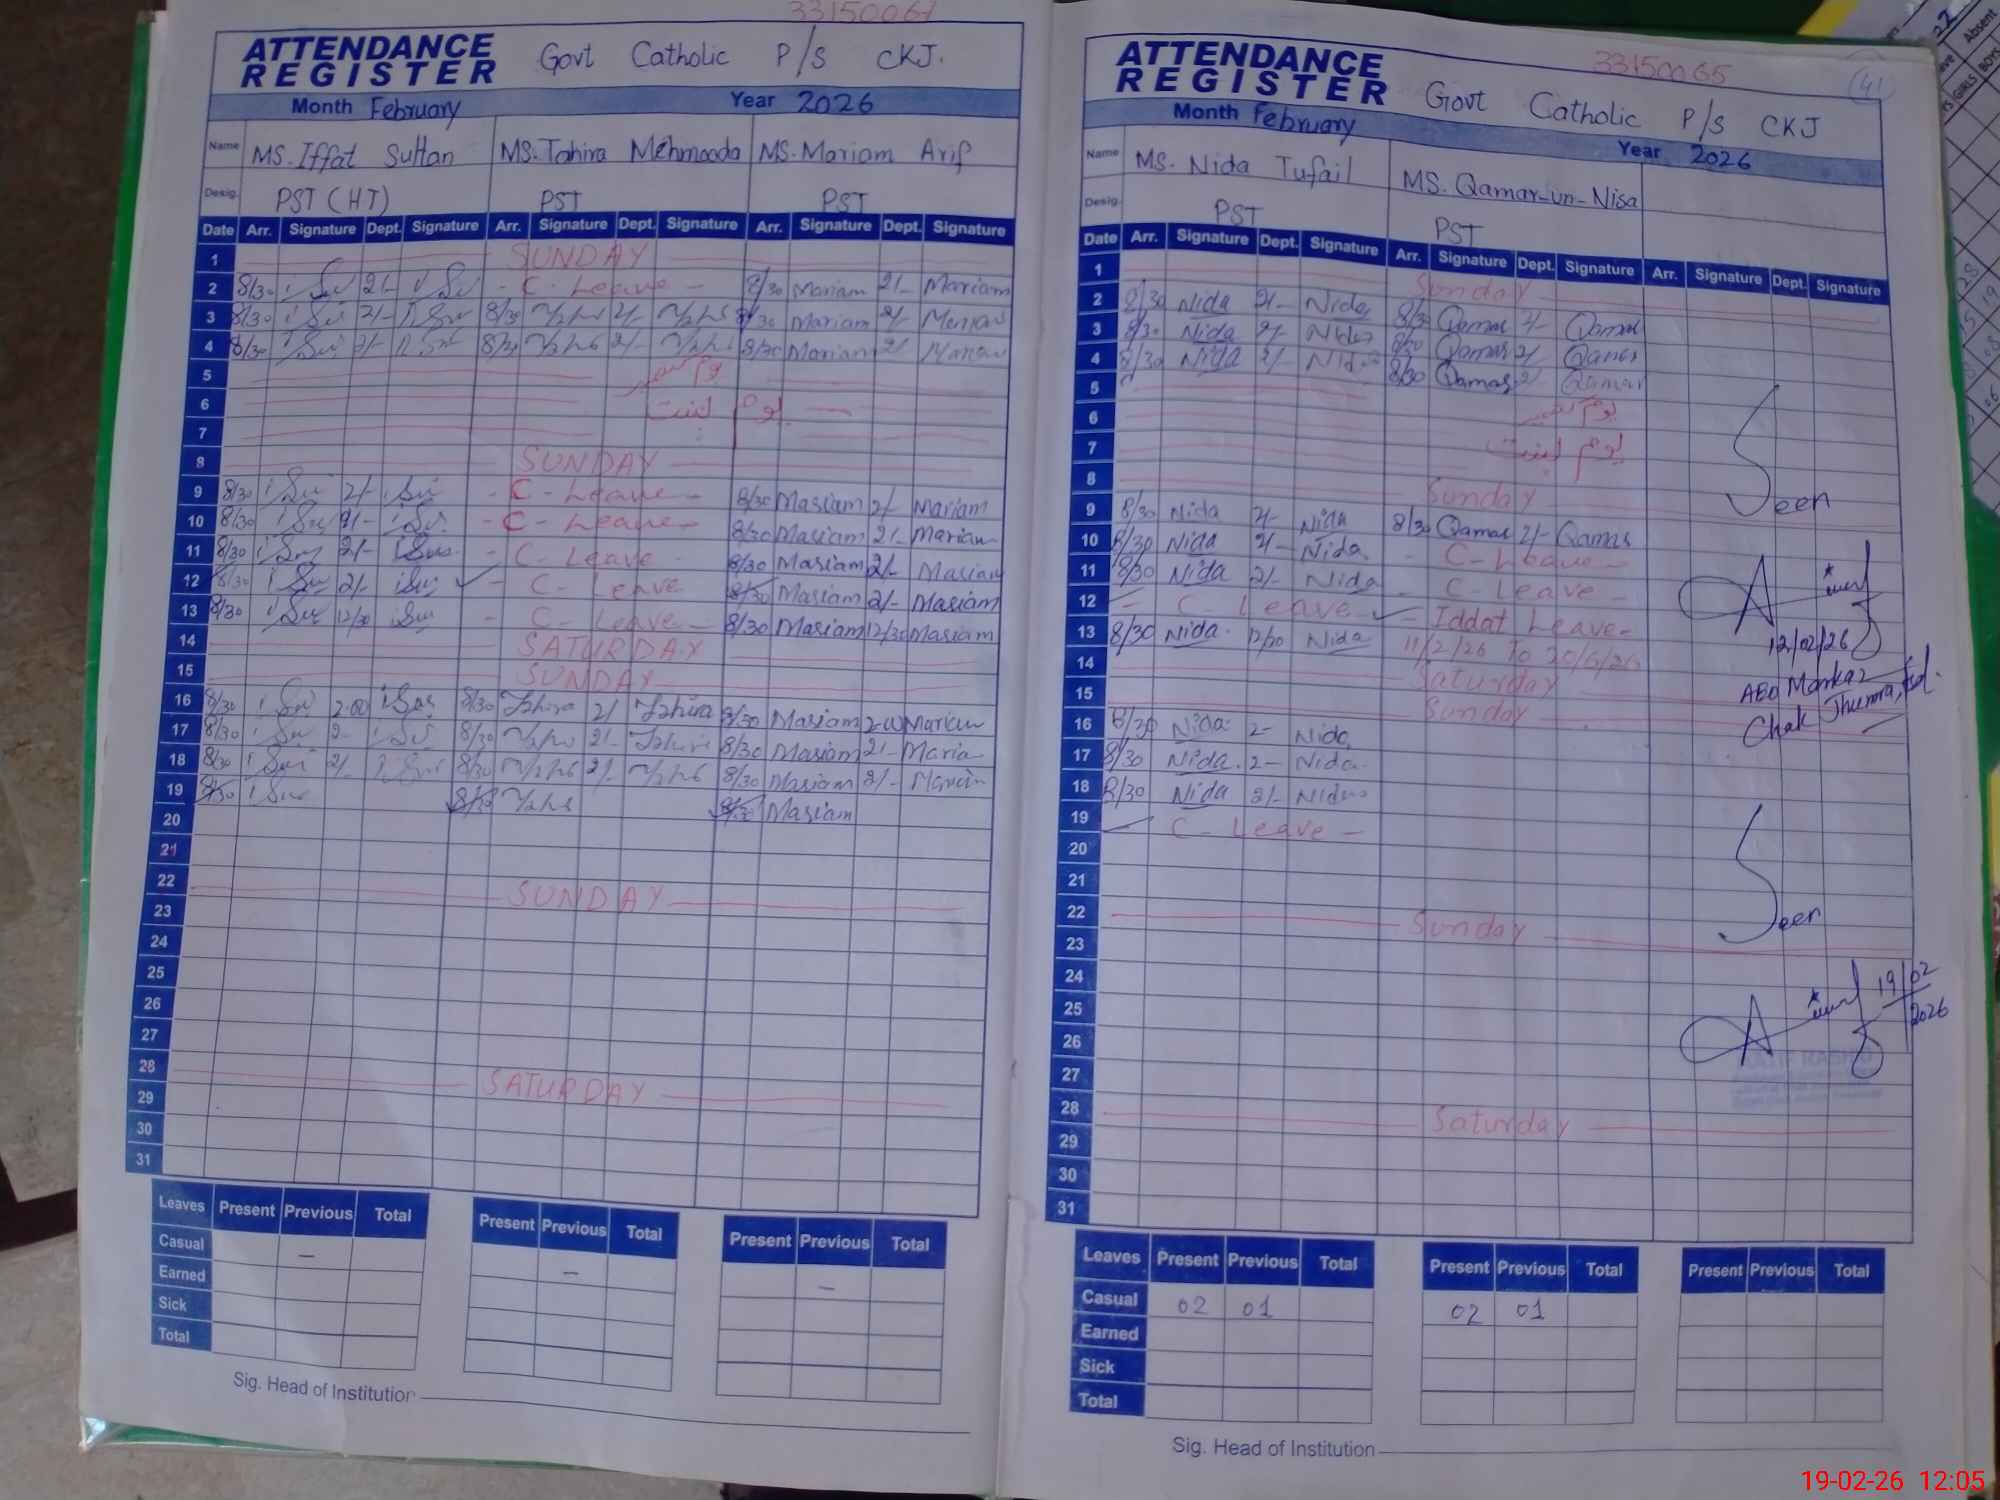 33150061
ATTENDANCE
REGISTER
Govt Catholic P/S CKJ.
Month February Year 2026
Name MS. Iffat Sultan MS. Tahira Mehmooda MS. Mariam Arif
Desig. PST (HT) PST PST
Date Arr. Signature Dept. Signature Arr. Signature Dept. Signature Arr. Signature Dept. Signature
1 SUNDAY
2 8/30 2/- - C - Leave - 8/30 Mariam 2/- Mariam
3 8/30 2/- 8/30 2/- 8/30 Mariam 2/-
4 8/30 2/- 8/30 2/- 8/30 Mariam 2/
5 یوم
6 یوم
7
8 SUNDAY
9 8/30 2/- - C - Leave - 8/30 Mariam 2/- Mariam
10 8/30 2/- - C - Leave - 8/30 Mariam 2/- Mariam
11 8/30 2/- - C - Leave 8/30 Mariam 2/- Mariam
12 8/30 2/- - C - Leave 8/30 Mariam 2/- Mariam
13 8/30 12/30 - C - Leave - 8/30 Mariam 12/30 Mariam
14 SATURDAY
15 SUNDAY
16 8/30 2-00 8/30 Tahira 2/ Tahira 8/30 Mariam 2-00 Mariam
17 8/30 2- 8/30 2/- 8/30 Mariam 2/-
18 8/30 2/- 8/30 2/- 8/30 Mariam 2/-
19 8/30 8/30 8/30 Mariam
20
21
22 SUNDAY
23
24
25
26
27
28 SATURDAY
29
30
31
Leaves Present Previous Total Present Previous Total Present Previous Total
Casual - - -
Earned
Sick
Total
Sig. Head of Institution
33150065
41
ATTENDANCE
REGISTER
Govt Catholic P/S CKJ
Month February Year 2026
Name MS. Nida Tufail MS. Qamar-un-Nisa
Desig. PST PST
Date Arr. Signature Dept. Signature Arr. Signature Dept. Signature Arr. Signature Dept. Signature
1 Sunday
2 8/30 Nida 2/- Nida 8/30 Qamar 2/- Qamar
3 8/30 Nida 2/- Nida 8/30 Qamar 2/ Qamar
4 8/30 Nida 2/- Nida 8/30 Qamar 2/- Qamar
5
6 یوم
7 یوم
8 Sunday
9 8/30 Nida 2/- Nida 8/30 Qamar 2/- Qamar
10 8/30 Nida 2/- Nida. - C - Leave -
11 8/30 Nida 2/- Nida - C - Leave -
12 - C - Leave - Iddat Leave -
13 8/30 Nida. 12/30 Nida 11/2/26 To 20/6/26
14 Saturday
15 Sunday
16 8/30 Nida. 2- Nida
17 8/30 Nida. 2- Nida.
18 8/30 Nida 2/- Nida
19 C - Leave -
20
21
22 Sunday
23
24
25
26
27
28 Saturday
29
30
31
Seen
12/02/26
AEO Markaz
Chak Jhumra, Fsd.
Seen
19/02
2026
Leaves Present Previous Total Present Previous Total Present Previous Total
Casual 02 01 02 01
Earned
Sick
Total
Sig. Head of Institution
Absent
GIRLS BOYS
19-02-26 12:05